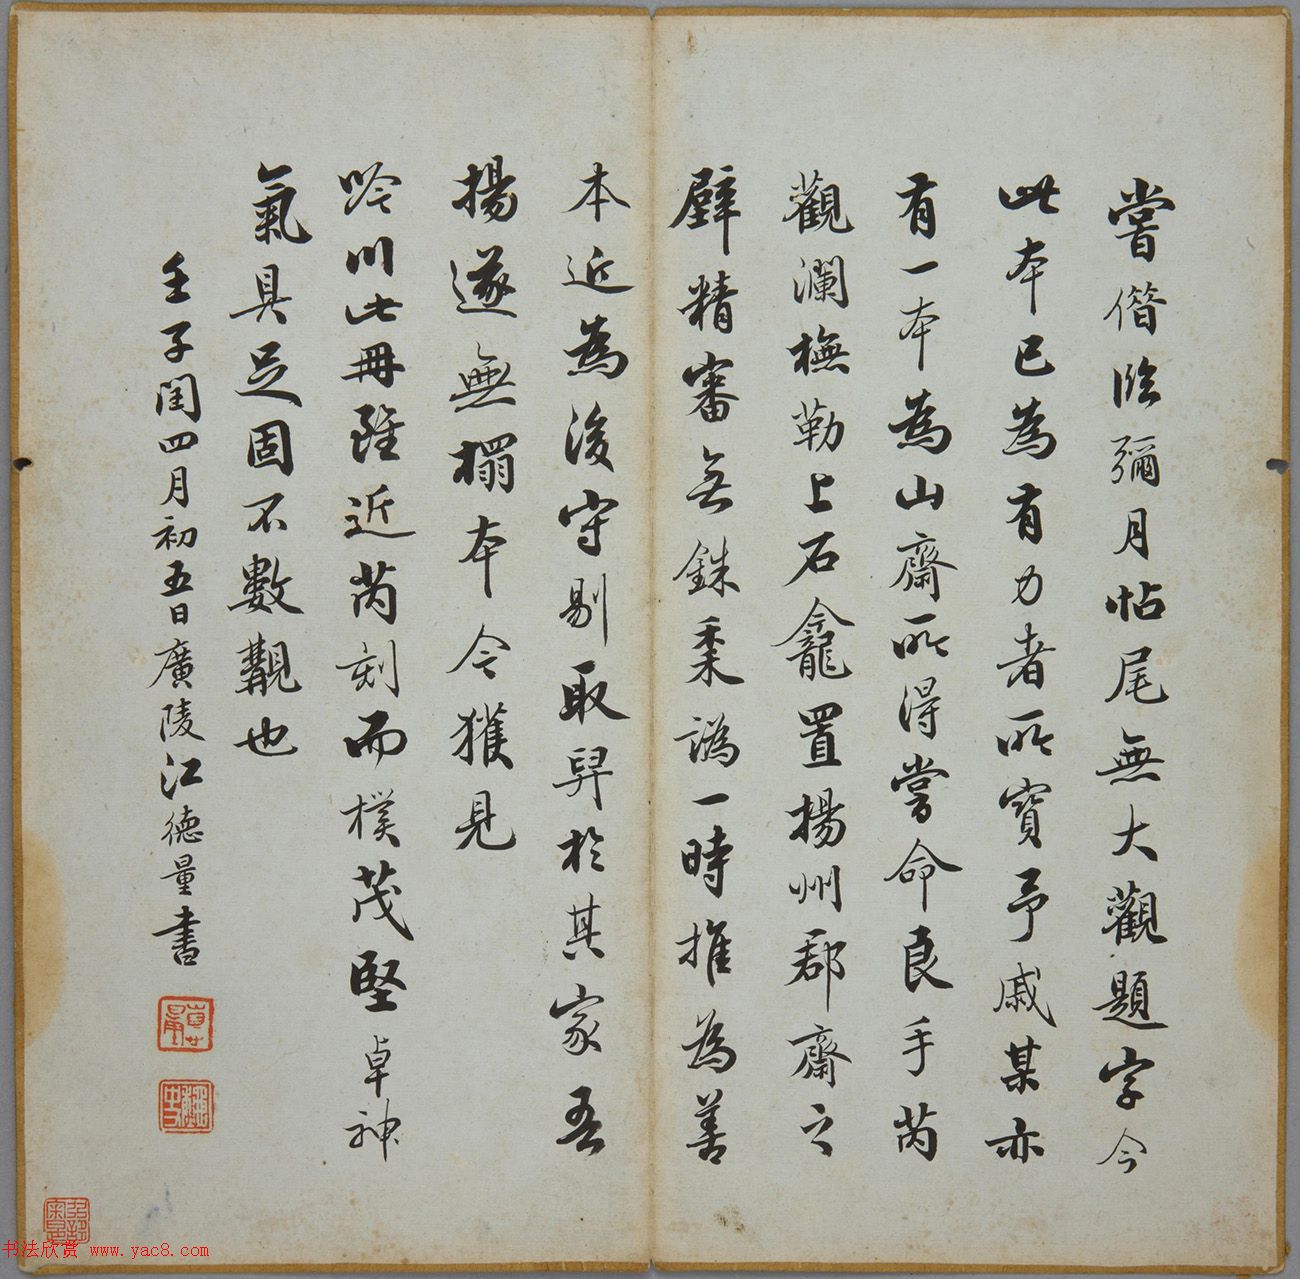 嘗借臨彌月帖尾無大觀題字今
此本已為有力者所寶予戚某亦
有一本為山齋所得嘗命良手芮
觀瀾橅勒上石龕置揚州郡齋之
壁精審無銖黍譌一時推為善
本近為後守剔取舁於其家吾
揚遂無搨本今獲見
吟川此冊雖近芮刻而樸茂堅卓神
氣具足固不數覯也
壬子閏四月初五日廣陵江德量書
书法欣赏 www.yac8.com